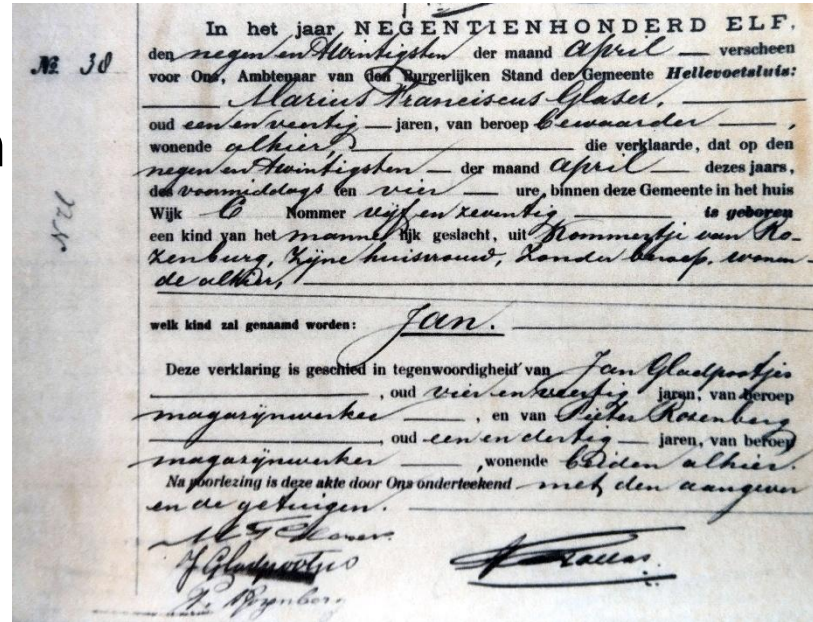 In het jaar NEGENTIENHONDERD ELF,
№ 38
den negen en twintigsten der maand April — verscheen
voor Ons, Ambtenaar van den Burgerlijken Stand der Gemeente Hellevoetsluis:
Marius Franciscus Glaser,
oud een en veertig — jaren, van beroep Bewaarder —,
wonende alhier, die verklaarde, dat op den
negen en twintigsten — der maand April — dezes jaars,
des voormiddags ten vier — ure, binnen deze Gemeente in het huis
Wijk C Nommer vijf en zeventig is geboren
een kind van het mannelijk geslacht, uit Kommertje van Ro-
zenburg, Zijne huisvrouw, Zonder beroep, wonen-
de alhier,
welk kind zal genaamd worden: Jan.
Deze verklaring is geschied in tegenwoordigheid van Jan Gladpootjes
, oud vier en veertig jaren, van beroep
magazijnwerker —, en van Pieter Rozenberg
, oud een en dertig — jaren, van beroep
magazijnwerker —, wonende beiden alhier.
Na voorlezing is deze akte door Ons onderteekend met den aangever
en de getuigen.
M F Glaser
J Gladpootjes
P. Rozenberg